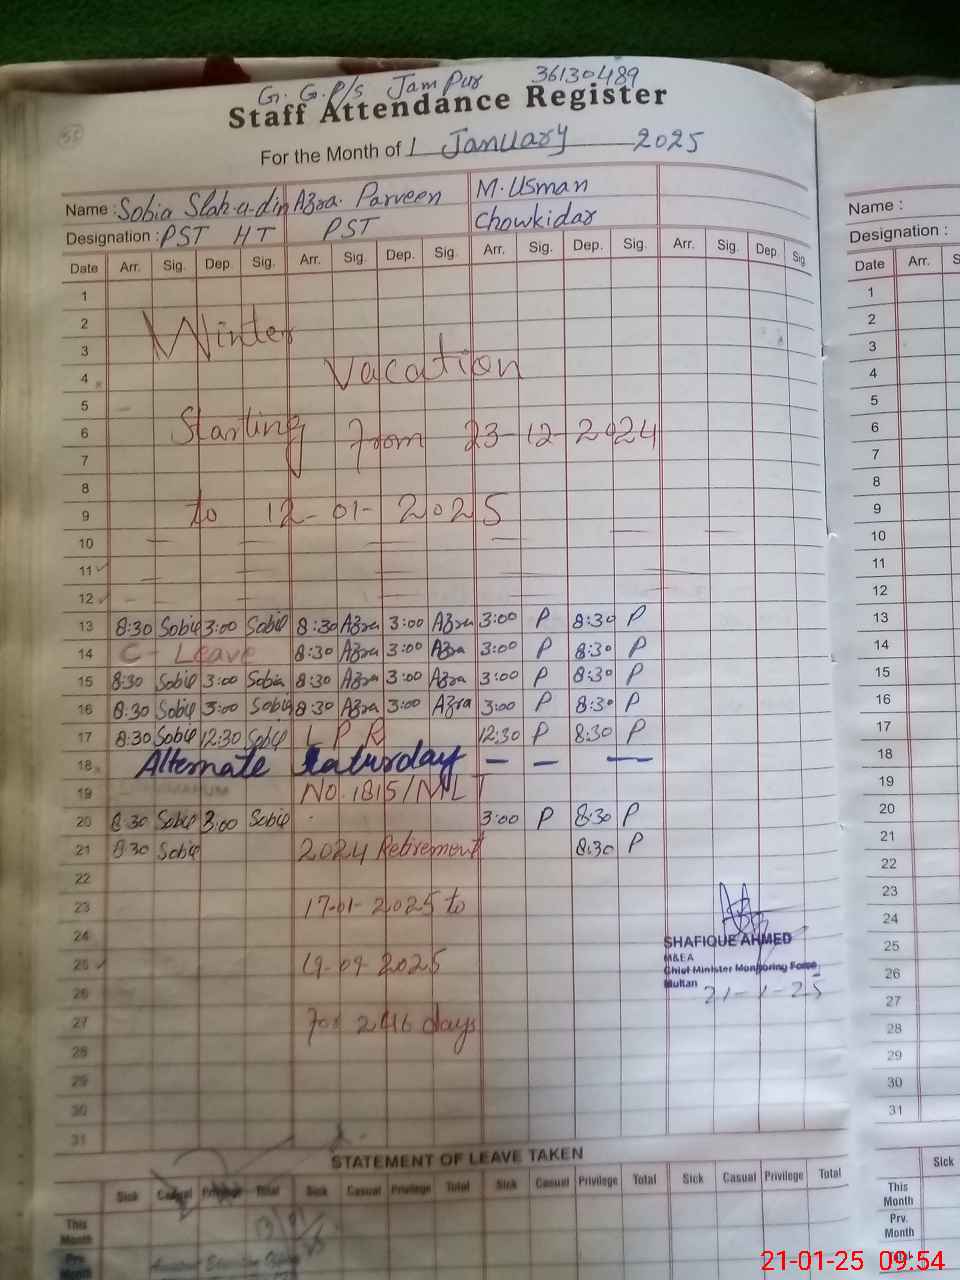 G. G. P/s Jam Pur 36130489
Staff Attendance Register
For the Month of 1 January 2025
Name : Sobia Slah-u-din Azra Parveen M. Usman
Designation : PST HT PST Chowkidar
Date Arr. Sig. Dep. Sig. Arr. Sig. Dep. Sig. Arr. Sig. Dep. Sig. Arr. Sig. Dep. Sig.
1
2 Winter
3
4 Vacation
5
6 Starting from 23-12-2024
7
8
9 to 12-01-2025
10
11
12
13 8:30 Sobia 3:00 Sobia 8:30 Azra 3:00 Azra 3:00 P 8:30 P
14 C-Leave 8:30 Azra 3:00 Azra 3:00 P 8:30 P
15 8:30 Sobia 3:00 Sobia 8:30 Azra 3:00 Azra 3:00 P 8:30 P
16 8:30 Sobia 3:00 Sobia 8:30 Azra 3:00 Azra 3:00 P 8:30 P
17 8:30 Sobia 12:30 Sobia L P R 12:30 P 8:30 P
18 Alternate Saturday — — —
19 No. 1815/MLT
20 8:30 Sobia 3:00 Sobia 3:00 P 8:30 P
21 8:30 Sobia 2024 Retirement 8:30 P
22
23 17-01-2025 to
24
25
26
27 for 246 days
28
29
30
31
SHAFIQUE AHMED
M&EA
Chief Minister Monitoring Force
Multan
21-1-25
STATEMENT OF LEAVE TAKEN
Sick Casual Privilege Total Sick Casual Privilege Total Sick Casual Privilege Total Sick Casual Privilege Total
This Month
Prv. Month
Name :
Designation :
Date Arr. S
1
2
3
4
5
6
7
8
9
10
11
12
13
14
15
16
17
18
19
20
21
22
23
24
25
26
27
28
29
30
31
Sick
This Month
Prv. Month
21-01-25 09:54